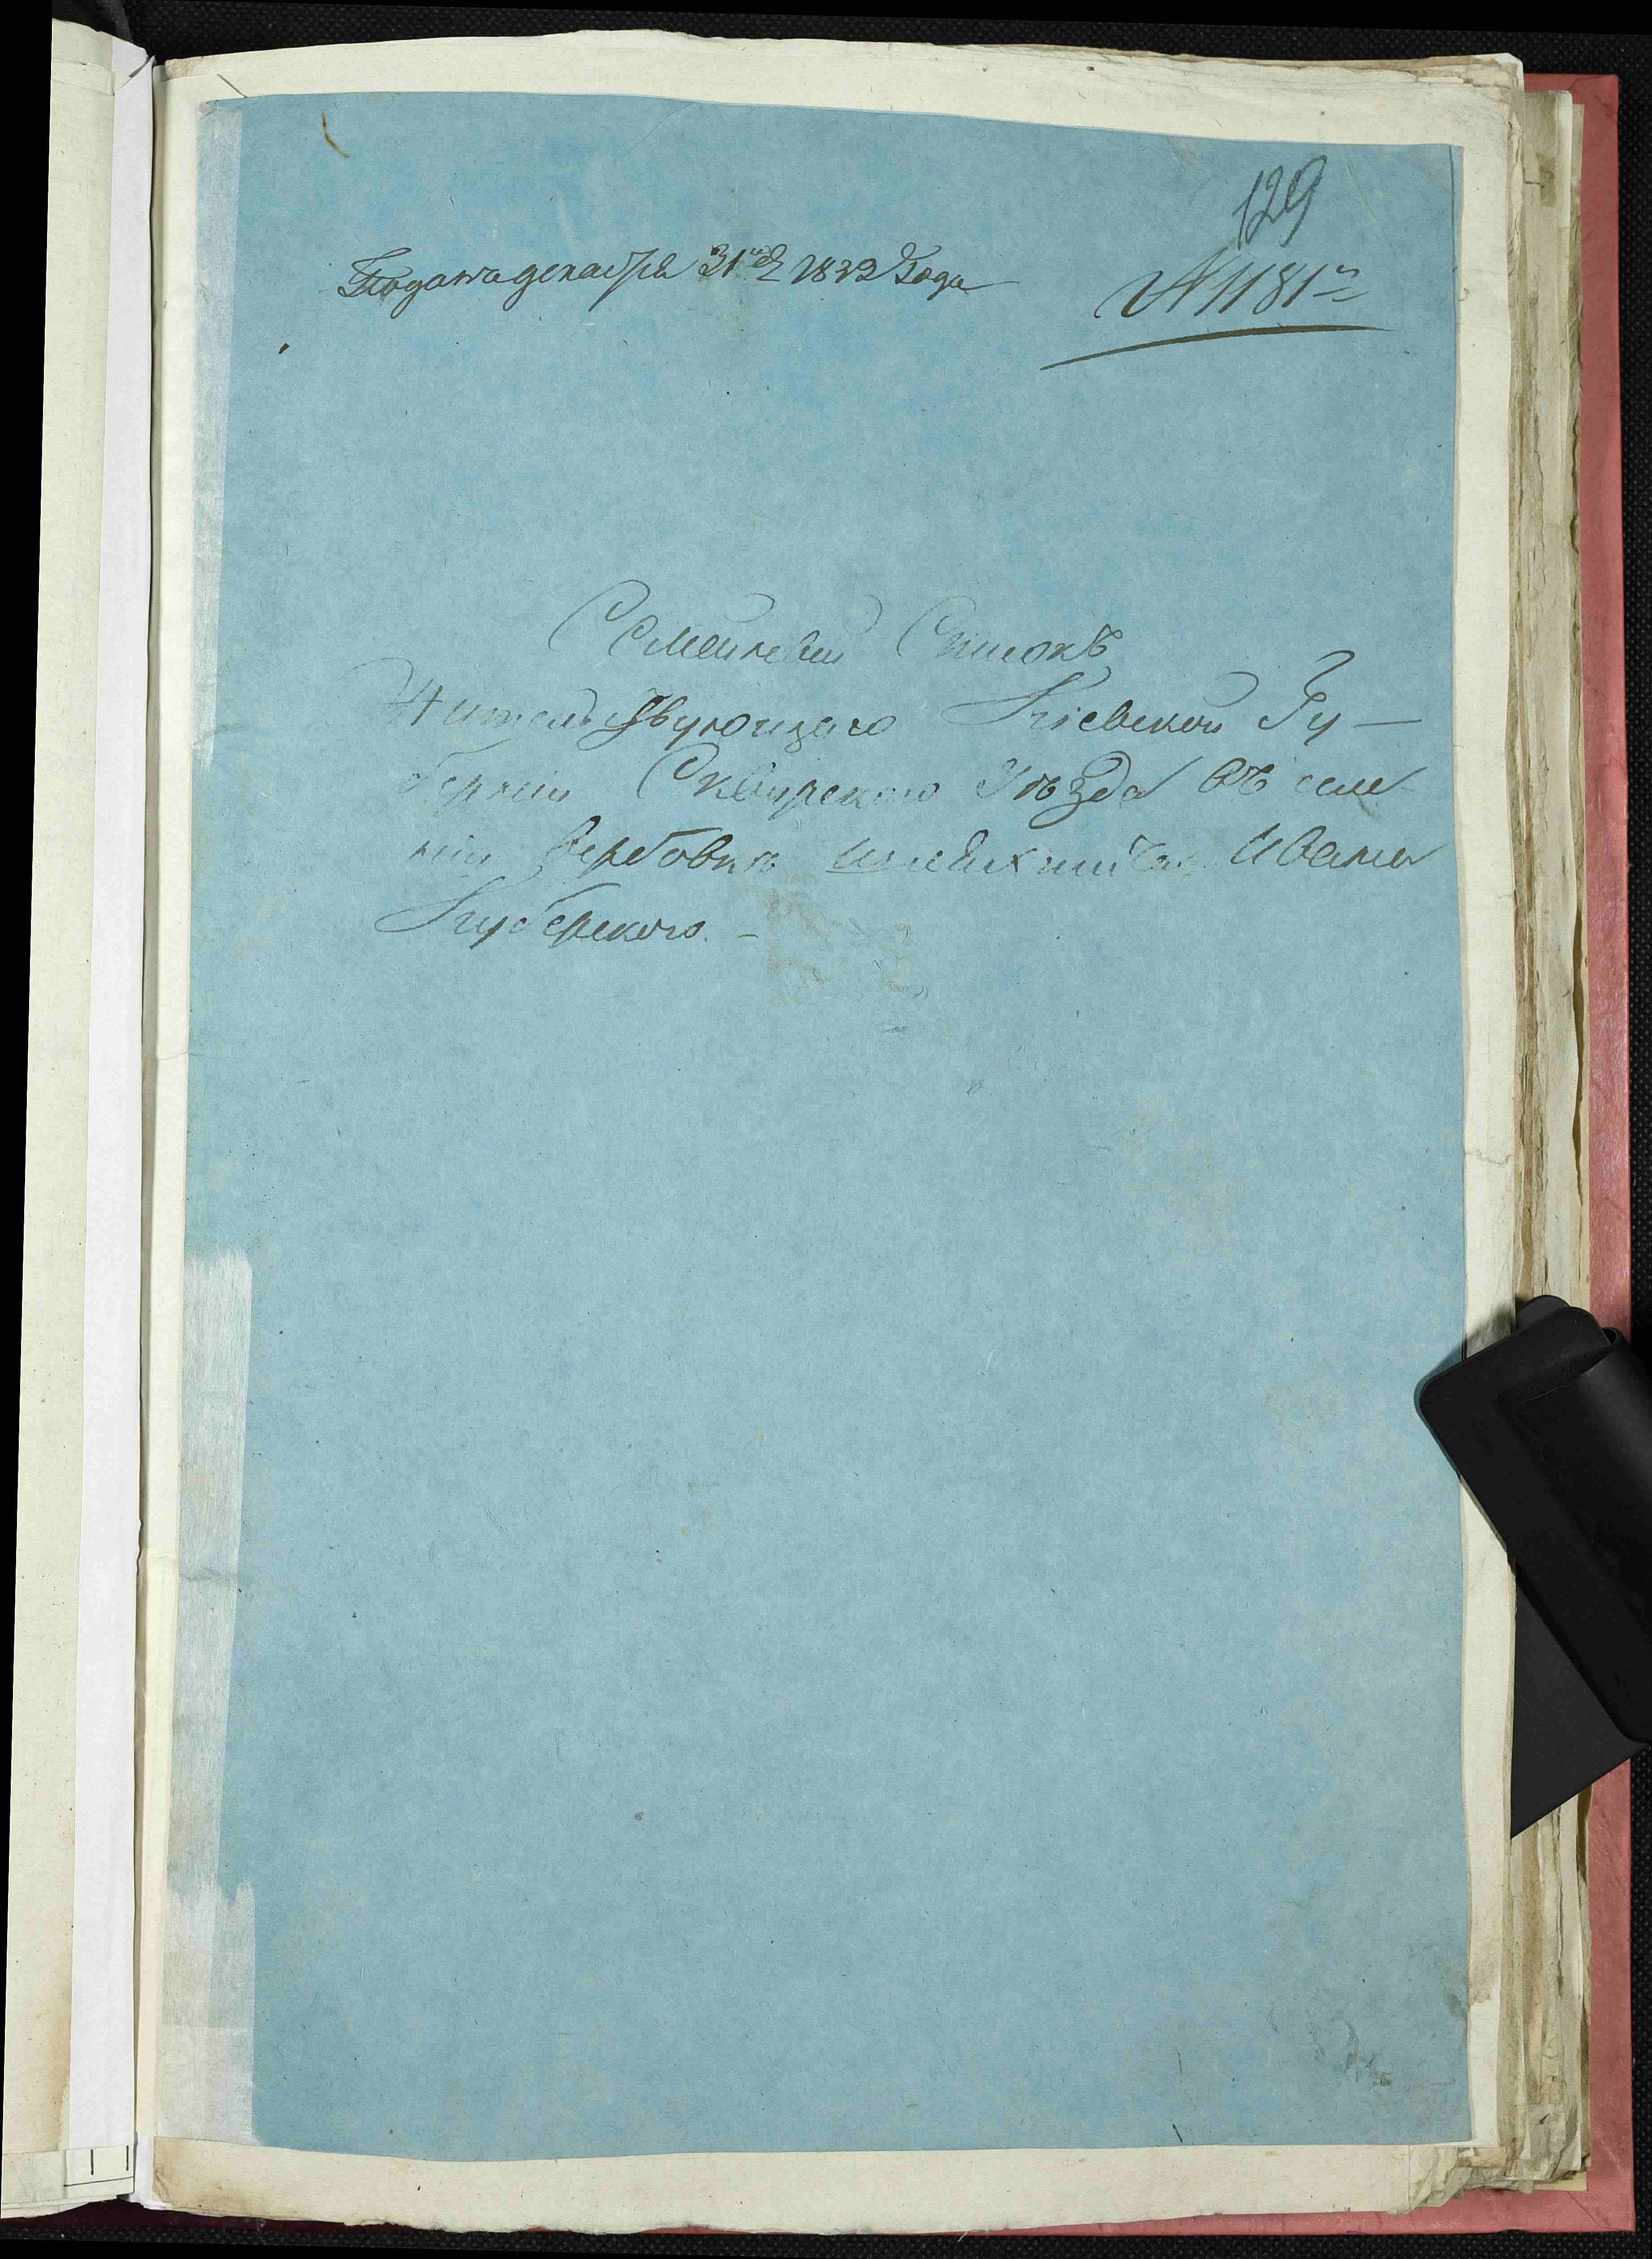 129
Подана декабря 31го 1832 Года
№ 1181й
Семейный Списокъ
Жительствующаго Кіевской Гу-
берніи Сквирского Уѣзда въ селе-
ніи Вербовкѣ шляхтича Ивана
Куберского. -